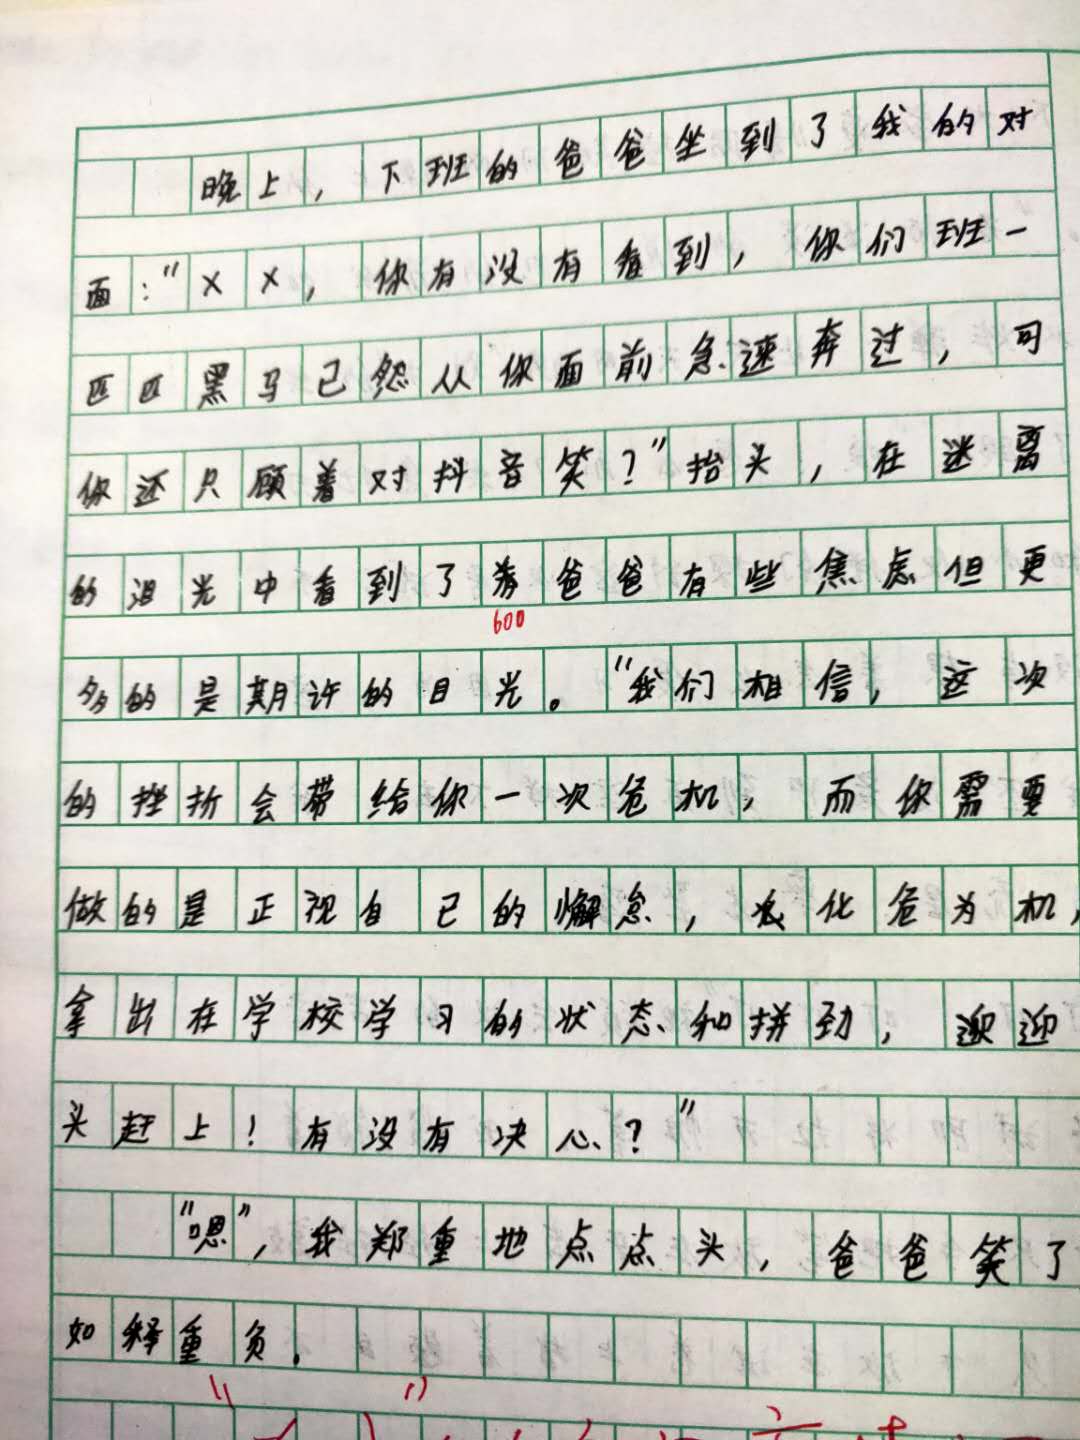 晚上，下班的爸爸坐到了我的对
面："××，你有没有看到，你们班一
匹匹黑马已然从你面前急速奔过，可
你还只顾着对抖音笑？"抬头，在迷离
的泪光中看到了爸爸有些焦虑但更
600
多的是期许的目光。"我们相信，这次
的挫折会带给你一次危机，而你需要
做的是正视自己的懈怠，化危为机，
拿出在学校学习的状态和拼劲，迎
头赶上！有没有决心？"
"嗯"，我郑重地点点头，爸爸笑了
如释重负.